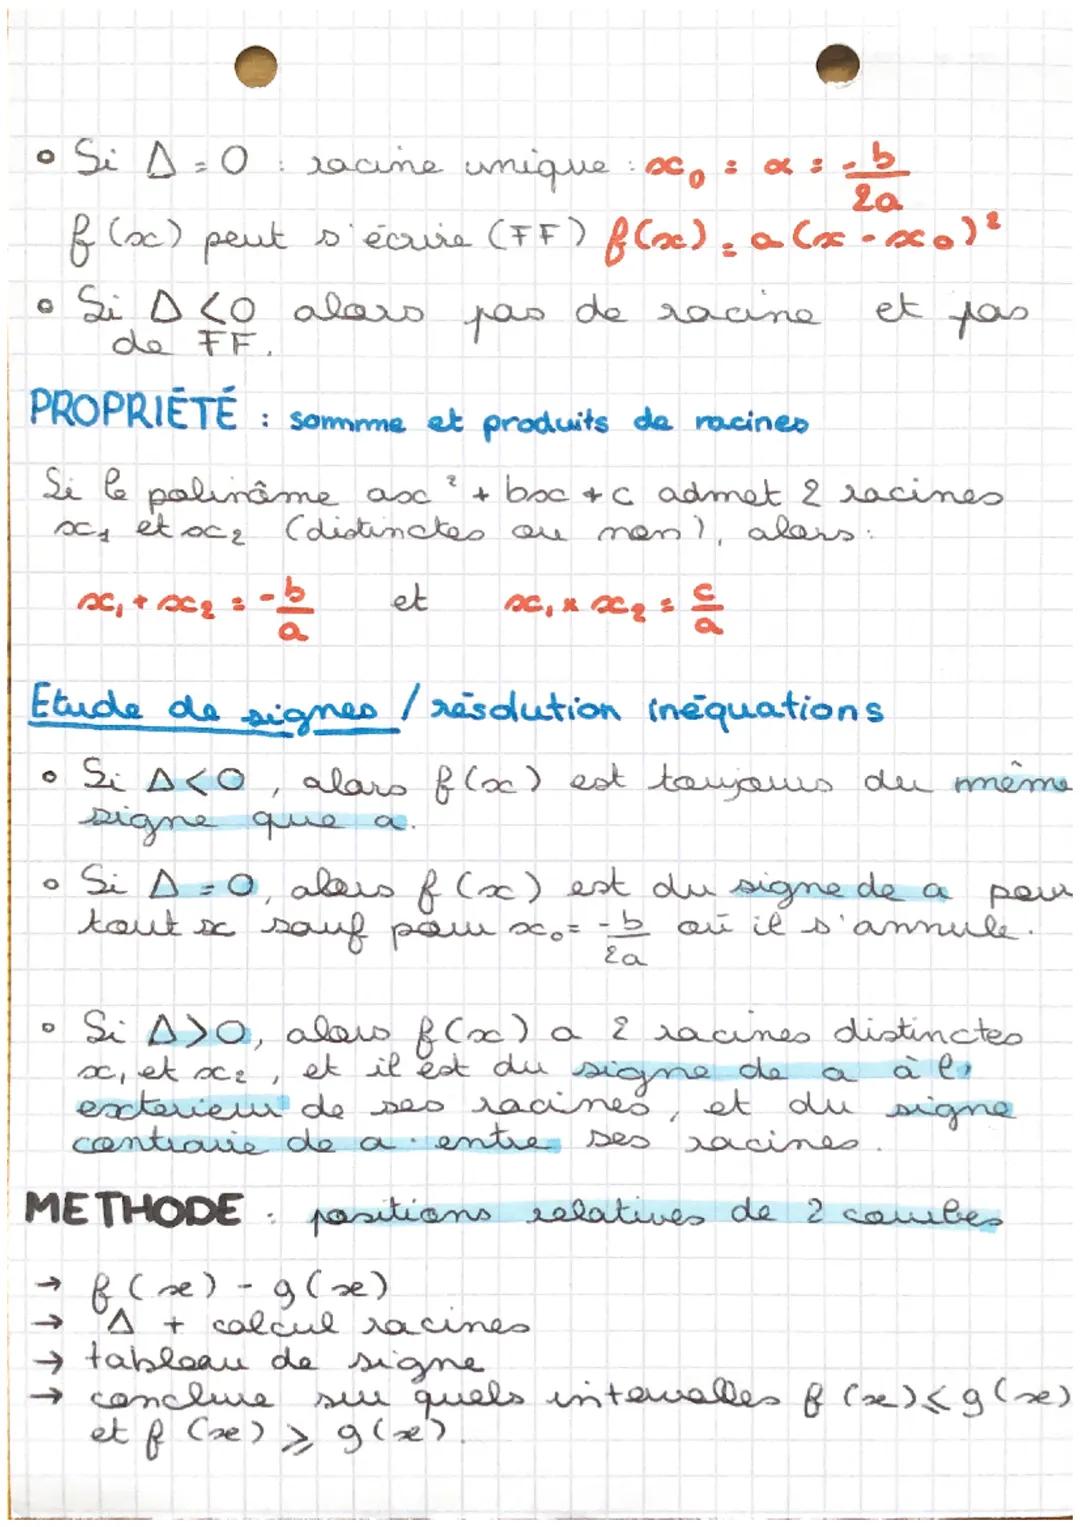 • Si Δ = 0 : racine unique : x₀ = α = -b/2a
f(x) peut s'écrire (FF) f(x) = a(x - x₀)²
• Si Δ < 0 alors pas de racine et pas
de FF.
PROPRIÉTÉ : sommme et produits de racines
Si le polinôme ax² + bx + c admet 2 racines
x₁ et x₂ (distinctes ou non), alors :
x₁ + x₂ = -b/a et x₁ × x₂ = c/a
Etude de signes / résolution inéquations
• Si Δ < 0, alors f(x) est toujours du même
signe que a.
• Si Δ = 0, alors f(x) est du signe de a pour
tout x sauf pour x₀ = -b/2a où il s'annule.
• Si Δ > 0, alors f(x) a 2 racines distinctes
x₁ et x₂, et il est du signe de a à l'
exterieur de ses racines, et du signe
contraire de a entre ses racines.
METHODE : positions relatives de 2 courbes
→ f(x) - g(x)
→ Δ + calcul racines
→ tableau de signe
→ conclure sur quels intervalles f(x) ⩽ g(x)
et f(x) ⩾ g(x).